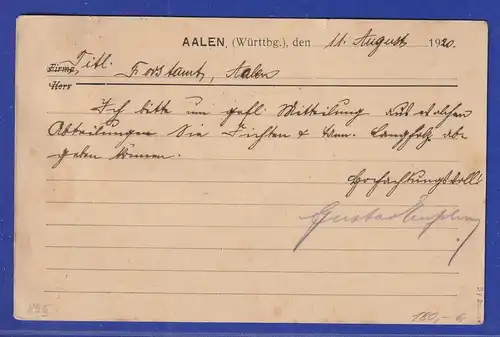 AALEN, (Württbg.), den 11. August 1920.
Firma Titl.
Herr Forstamt, Aalen
Ich bitte um gefl. Mitteilung aus welchen
Abteilungen Sie Fichten & Tann. Langholz ab-
geben können.
Hochachtungsvollst
Gustav
180,- €